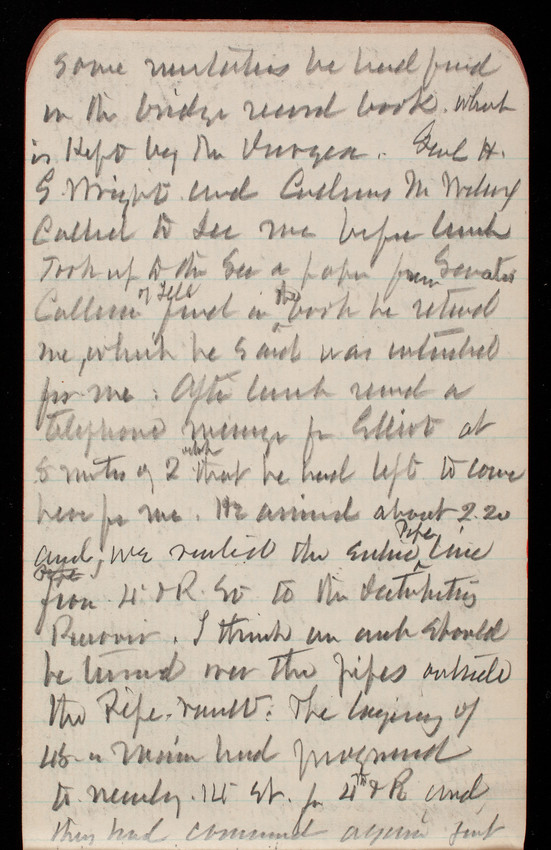 some mistakes he had found
in the bridge record book which
is kept by the Surgeon. Genl H.
G. Wright and Cadmus M Wilcox
Called to see me before lunch
Took up to the Sec a paper from Senator
Cullom of Ills found in the book he returned
me, which he said was intended
for me. After lunch recvd a
telephone message from Elliot at
5 mts of 2 that he had left to come
here for me. He arrived about 2.20
and, we visited the entire Pipe line
from 4 & R St to the Distributing
Reservoir. I think an arch should
be turned over the pipes outside
the Pipe-vault. The laying of
48 in main had progressed
to nearly 14 St. from 4th & R and
they had commenced again